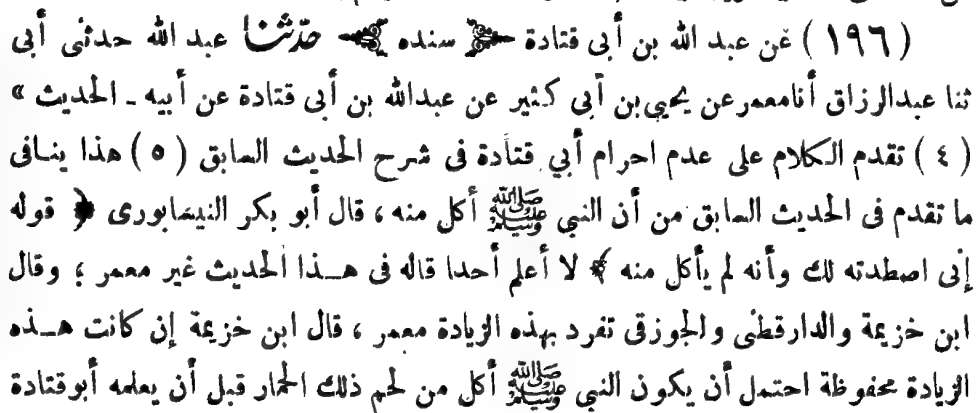 (١٩٦) عن عبد الله بن أبى قتادة سنده حدّثنا عبد الله حدثنى أبى
ثنا عبدالرزاق أنامعمرعن يحيى بن أبى كثير عن عبدالله بن أبى قتادة عن أبيه ـ الحديث »
(٤) تقدم الكلام على عدم احرام أبي قتادة فى شرح الحديث السابق (٥) هذا ينافى
ما تقدم فى الحديث السابق من أن النبى ﷺ أكل منه ، قال أبو بكر النيسابورى ﴿ قوله
إنى اصطدته لك وأنه لم يأكل منه ﴾ لا أعلم أحدا قاله فى هــذا الحديث غير معمر ؛ وقال
ابن خزيمة والدارقطنى والجوزقى تفرد بهذه الزيادة معمر ، قال ابن خزيمة إن كانت هــذه
الزيادة محفوظة احتمل أن يكون النبى ﷺ أكل من لحم ذلك الحمار قبل أن يعلمه أبوقتادة